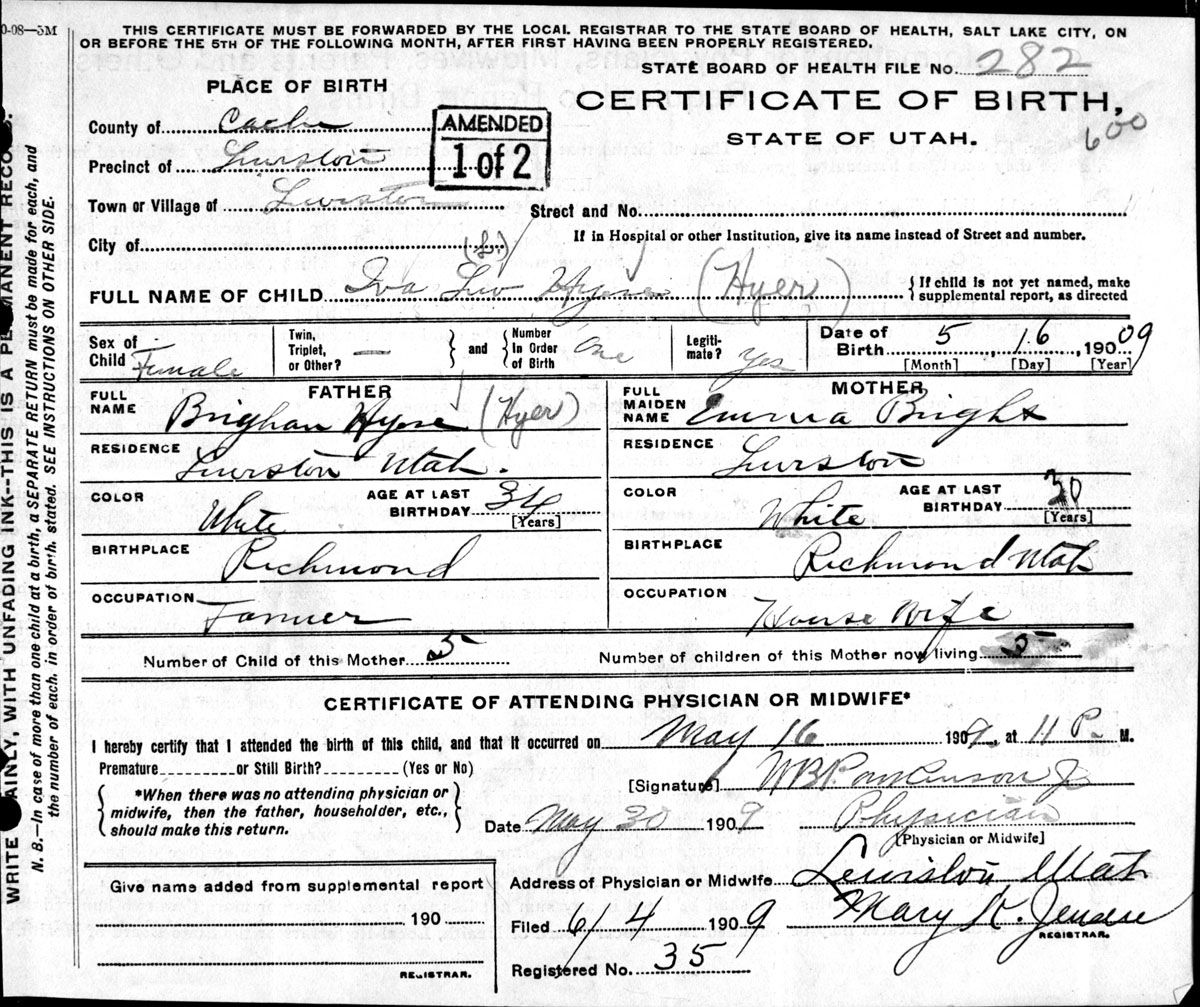 0-08—5M
THIS CERTIFICATE MUST BE FORWARDED BY THE LOCAL REGISTRAR TO THE STATE BOARD OF HEALTH, SALT LAKE CITY, ON
OR BEFORE THE 5TH OF THE FOLLOWING MONTH, AFTER FIRST HAVING BEEN PROPERLY REGISTERED.
STATE BOARD OF HEALTH FILE No. 282
PLACE OF BIRTH
CERTIFICATE OF BIRTH,
STATE OF UTAH.
600
County of Cache
AMENDED
1 of 2
Precinct of Lewiston
Town or Village of Lewiston
Street and No.
City of
If in Hospital or other Institution, give its name instead of Street and number.
FULL NAME OF CHILD Iva Hyese (Hyer)
If child is not yet named, make
supplemental report, as directed
Sex of Child Female
Twin, Triplet, or Other? —
and
Number In Order of Birth One
Legiti-mate? Yes
Date of Birth 5, 16, 19009
[Month] [Day] [Year]
FATHER
FULL NAME Brighan Hyese (Hyer)
RESIDENCE Lewiston Utah.
COLOR White
AGE AT LAST BIRTHDAY 34
[Years]
BIRTHPLACE Richmond
OCCUPATION Farmer
MOTHER
FULL MAIDEN NAME Emma Bright
RESIDENCE Lewiston
COLOR White
AGE AT LAST BIRTHDAY 30
[Years]
BIRTHPLACE Richmond Utah
OCCUPATION House Wife
Number of Child of this Mother 5
Number of children of this Mother now living 5
CERTIFICATE OF ATTENDING PHYSICIAN OR MIDWIFE*
I hereby certify that I attended the birth of this child, and that it occurred on May 16 1909, at 11 P. M.
Premature or Still Birth? (Yes or No)
[Signature] WB Parkinson Jr
*When there was no attending physician or
midwife, then the father, householder, etc.,
should make this return.
Date May 30 1909
Physician
[Physician or Midwife]
Give name added from supplemental report
190
REGISTRAR.
Address of Physician or Midwife Lewiston Utah
Filed 6/4 1909 Mary K. Jensen
REGISTRAR.
Registered No. 35
WRITE AINLY, WITH UNFADING INK--THIS IS A PE MANENT RECO S.
N. B.—In case of more than one child at a birth, a SEPARATE RETURN must be made for each, and
the number of each, in order of birth, stated. SEE INSTRUCTIONS ON OTHER SIDE.